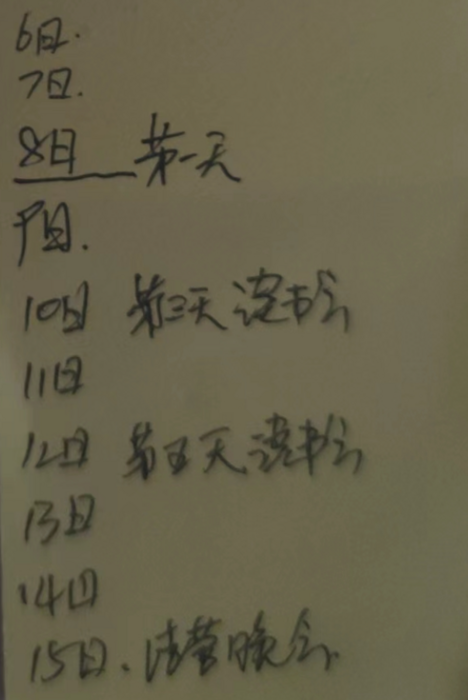 6日.
7日.
8日 第一天
9日.
10日 第三天 读书会
11日
12日 第五天 读书会
13日
14日
15日. 结营晚会